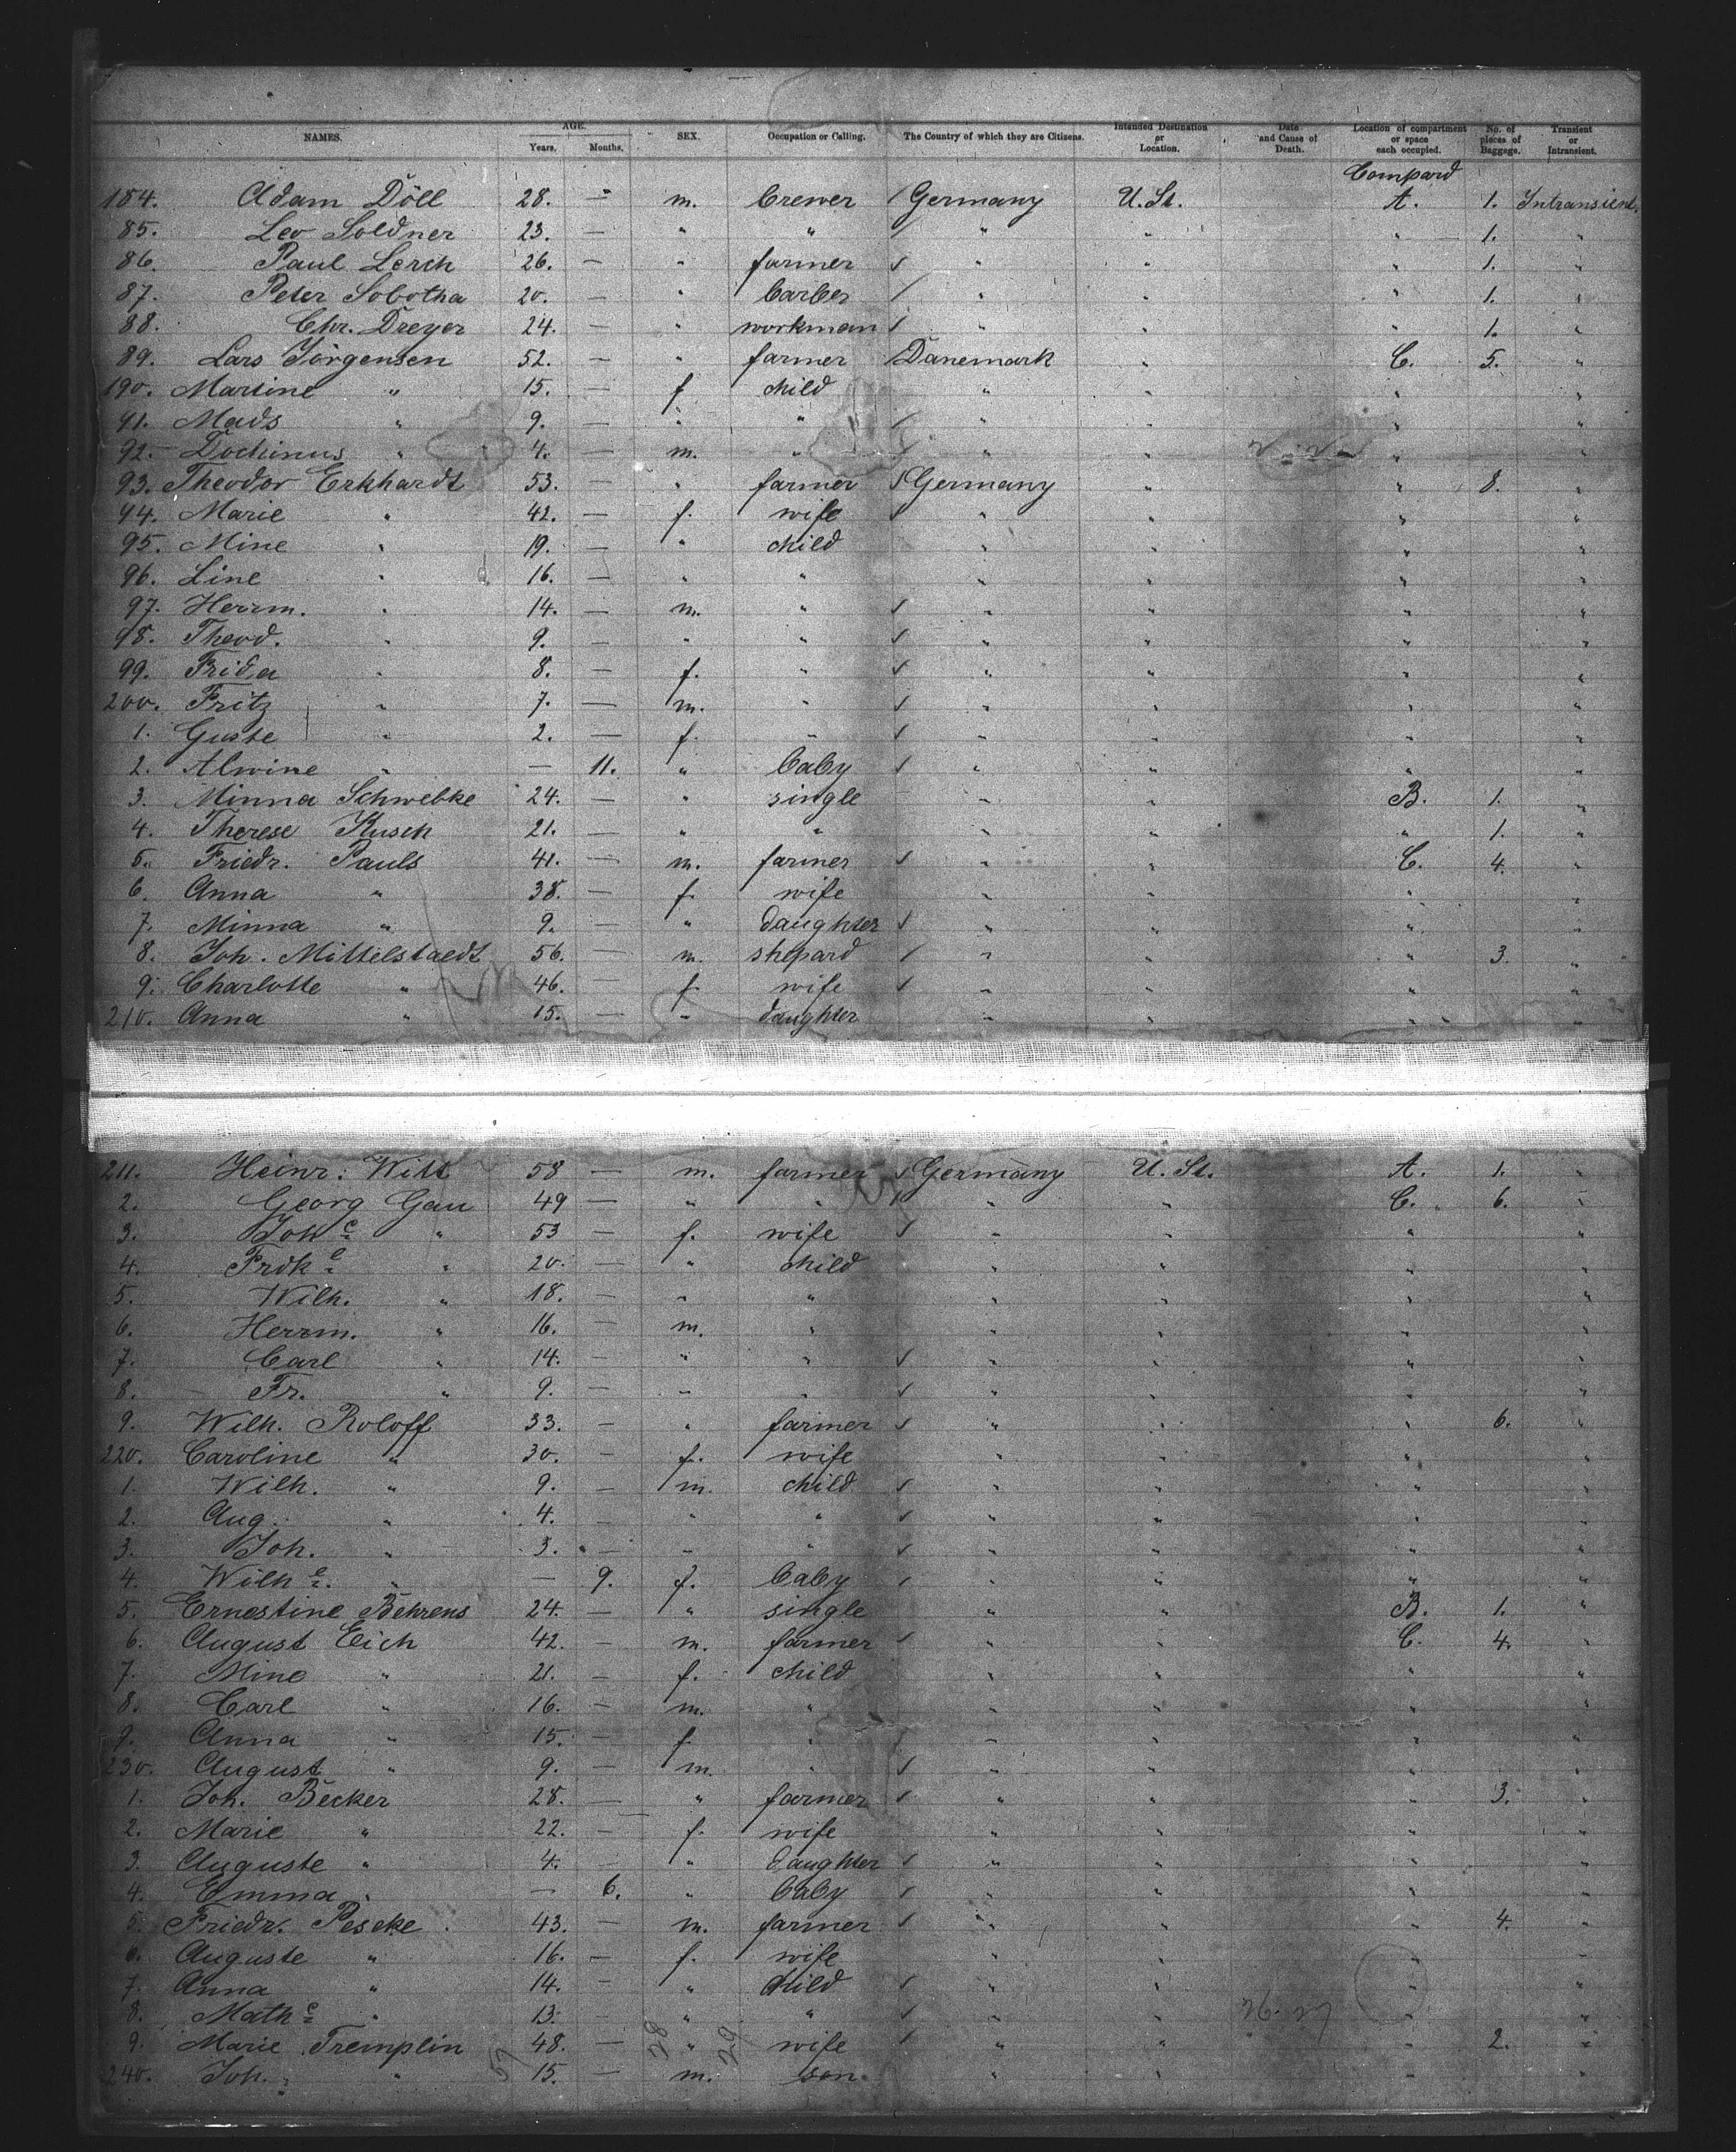 NAMES. AGE. Years. Months. SEX. Occupation or Calling. The Country of which they are Citizens. Intended Destination or Location. Date and Cause of Death. Location of compartment or space each occupied. No. of pieces of Baggage. Transient or Intransient.
Compard
184. Adam Döll 28. - m. brewer Germany U. St. A. 1. Intransient.
85. Leo Soldner 23. — " " " " " 1. "
86. Paul Lerch 26. — " farmer " " " 1. "
87. Peter Sobotha 20. — " barber " " " 1. "
88. Chr. Dreyer 24. — " workman " " " 1. "
89. Lars Jörgensen 52. — " farmer Danemark " C. 5. "
190. Martine " 15. — f child " " " "
91. Mads " 9. — " " " " " "
92. Dochinus " 4. — m. " " " " "
93. Theodor Erkhardt 53. — " farmer Germany " " 8. "
94. Marie " 42. — f. wife " " " "
95. Mine " 19. — " child " " " "
96. Line " 16. — " " " " " "
97. Herrm. " 14. — m. " " " " "
98. Theod. " 9. — " " " " " "
99. Frida " 8. — f. " " " " "
200. Fritz " 7. — m. " " " " "
1. Guste " 2. — f. " " " " "
2. Alwine " — 11. " baby " " " "
3. Minna Schwebke 24. — " single " " B. 1. "
4. Therese Kusch 21. — " " " " " 1. "
5. Friedr. Pauls 41. — m. farmer " " C. 4. "
6. Anna " 38. — f. wife " " " "
7. Minna " 9. — " daughter " " " "
8. Joh. Mittelstaedt 56. — m. shepard " " " 3. "
9. Charlotte " 46. — f. wife " " " "
210. Anna " 15. — " daughter " " " "
211. Heinr. Witt 58 — m. farmer Germany U. St. A. 1. "
2. Georg Gau 49 — " " " " C. 6. "
3. Joh e " 53 — f. wife " " " "
4. Frdk e " 20. — " child " " " "
5. Wilh. " 18. — " " " " " "
6. Herrm. " 16. — m. " " " " "
7. Carl " 14. — " " " " " "
8. Fr. " 9. — " " " " " "
9. Wilh. Roloff 33. — " farmer " " " 6. "
220. Caroline " 30. — f. wife " " " "
1. Wilh. " 9. — m. child " " " "
2. Aug. " 4. — " " " " " "
3. Joh. " 3. — " " " " " "
4. Wilh e. " — 9. f. baby " " " "
5. Ernestine Behrens 24. — " single " " B. 1. "
6. August Eich 42. — m. farmer " " C. 4. "
7. Mine " 21. — f. child " " " "
8. Carl " 16. — m. " " " " "
9. Anna " 15. — f " " " " "
230. August " 9. — m. " " " " "
1. Joh. Becker 28. — " farmer " " " 3. "
2. Marie " 22. — f. wife " " " "
3. Auguste " 4. — " daughter " " " "
4. Emma " — 6. " baby " " " "
5. Friedr. Peseke 43. — m. farmer " " " 4. "
6. Auguste " 16. — f. wife " " " "
7. Anna " 14. — " child " " " "
8. Math e " 13. — " " " " " "
9. Marie Tremplin 48. — " wife " " " 2. "
240. Joh. " 15. — m. son " " " "